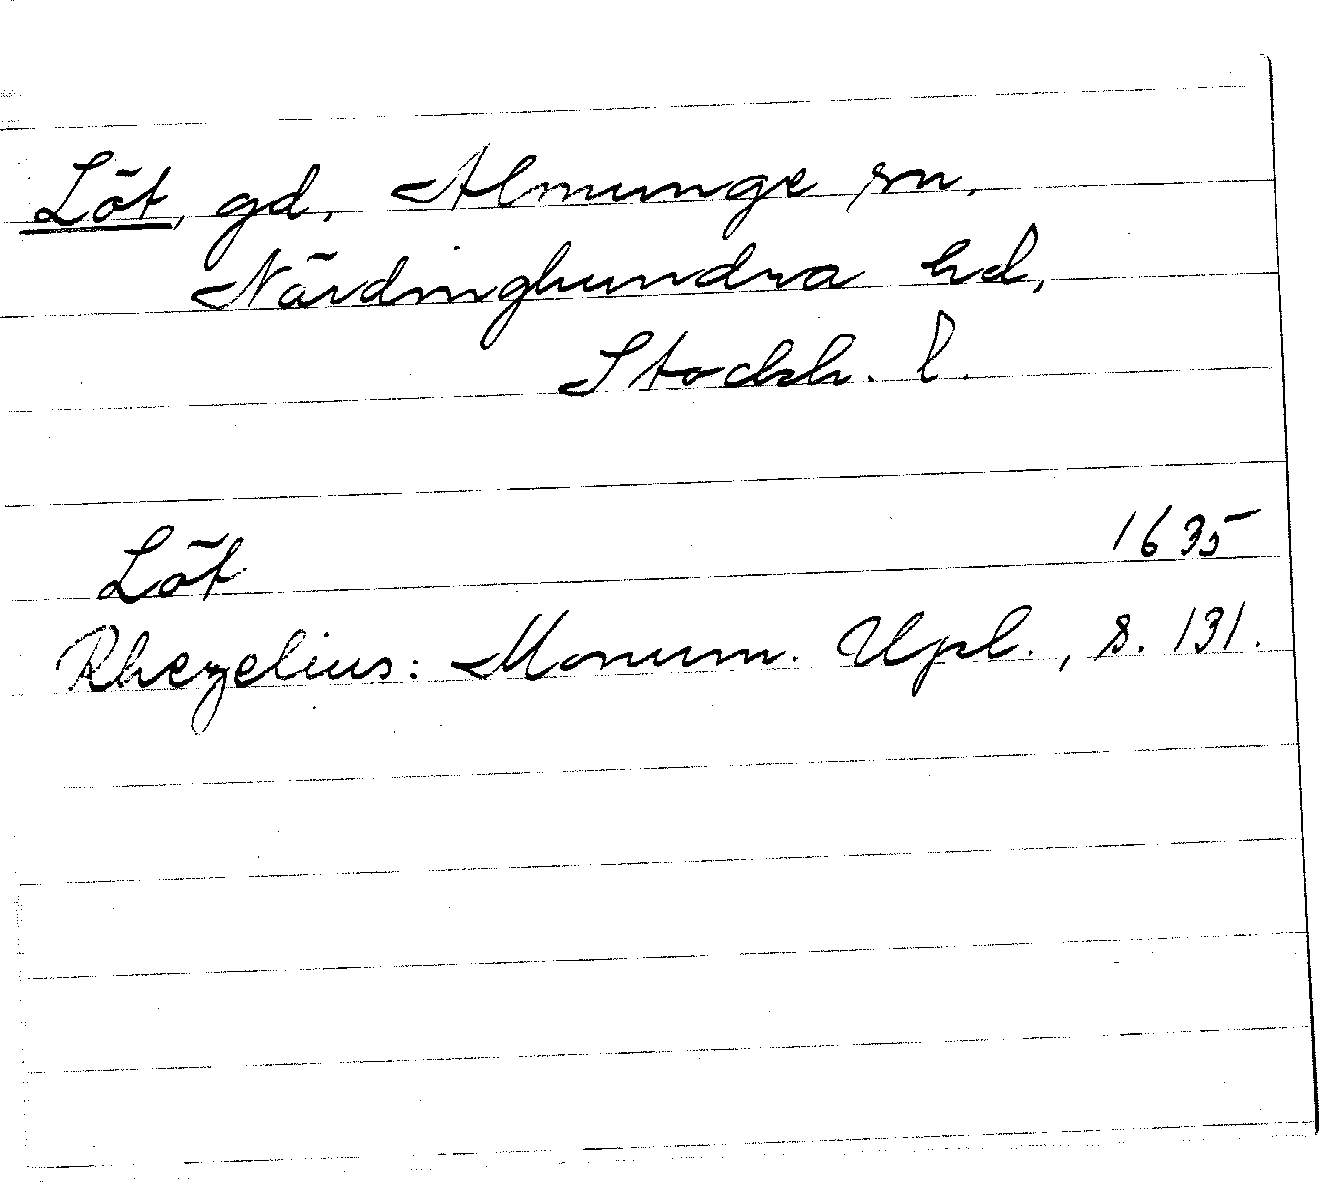 Löt, gd, Almunge sn,
Närdinghundra hd,
Stockh. l.
Löt 1635
Rhezelius: Monum. Upl., s. 131.